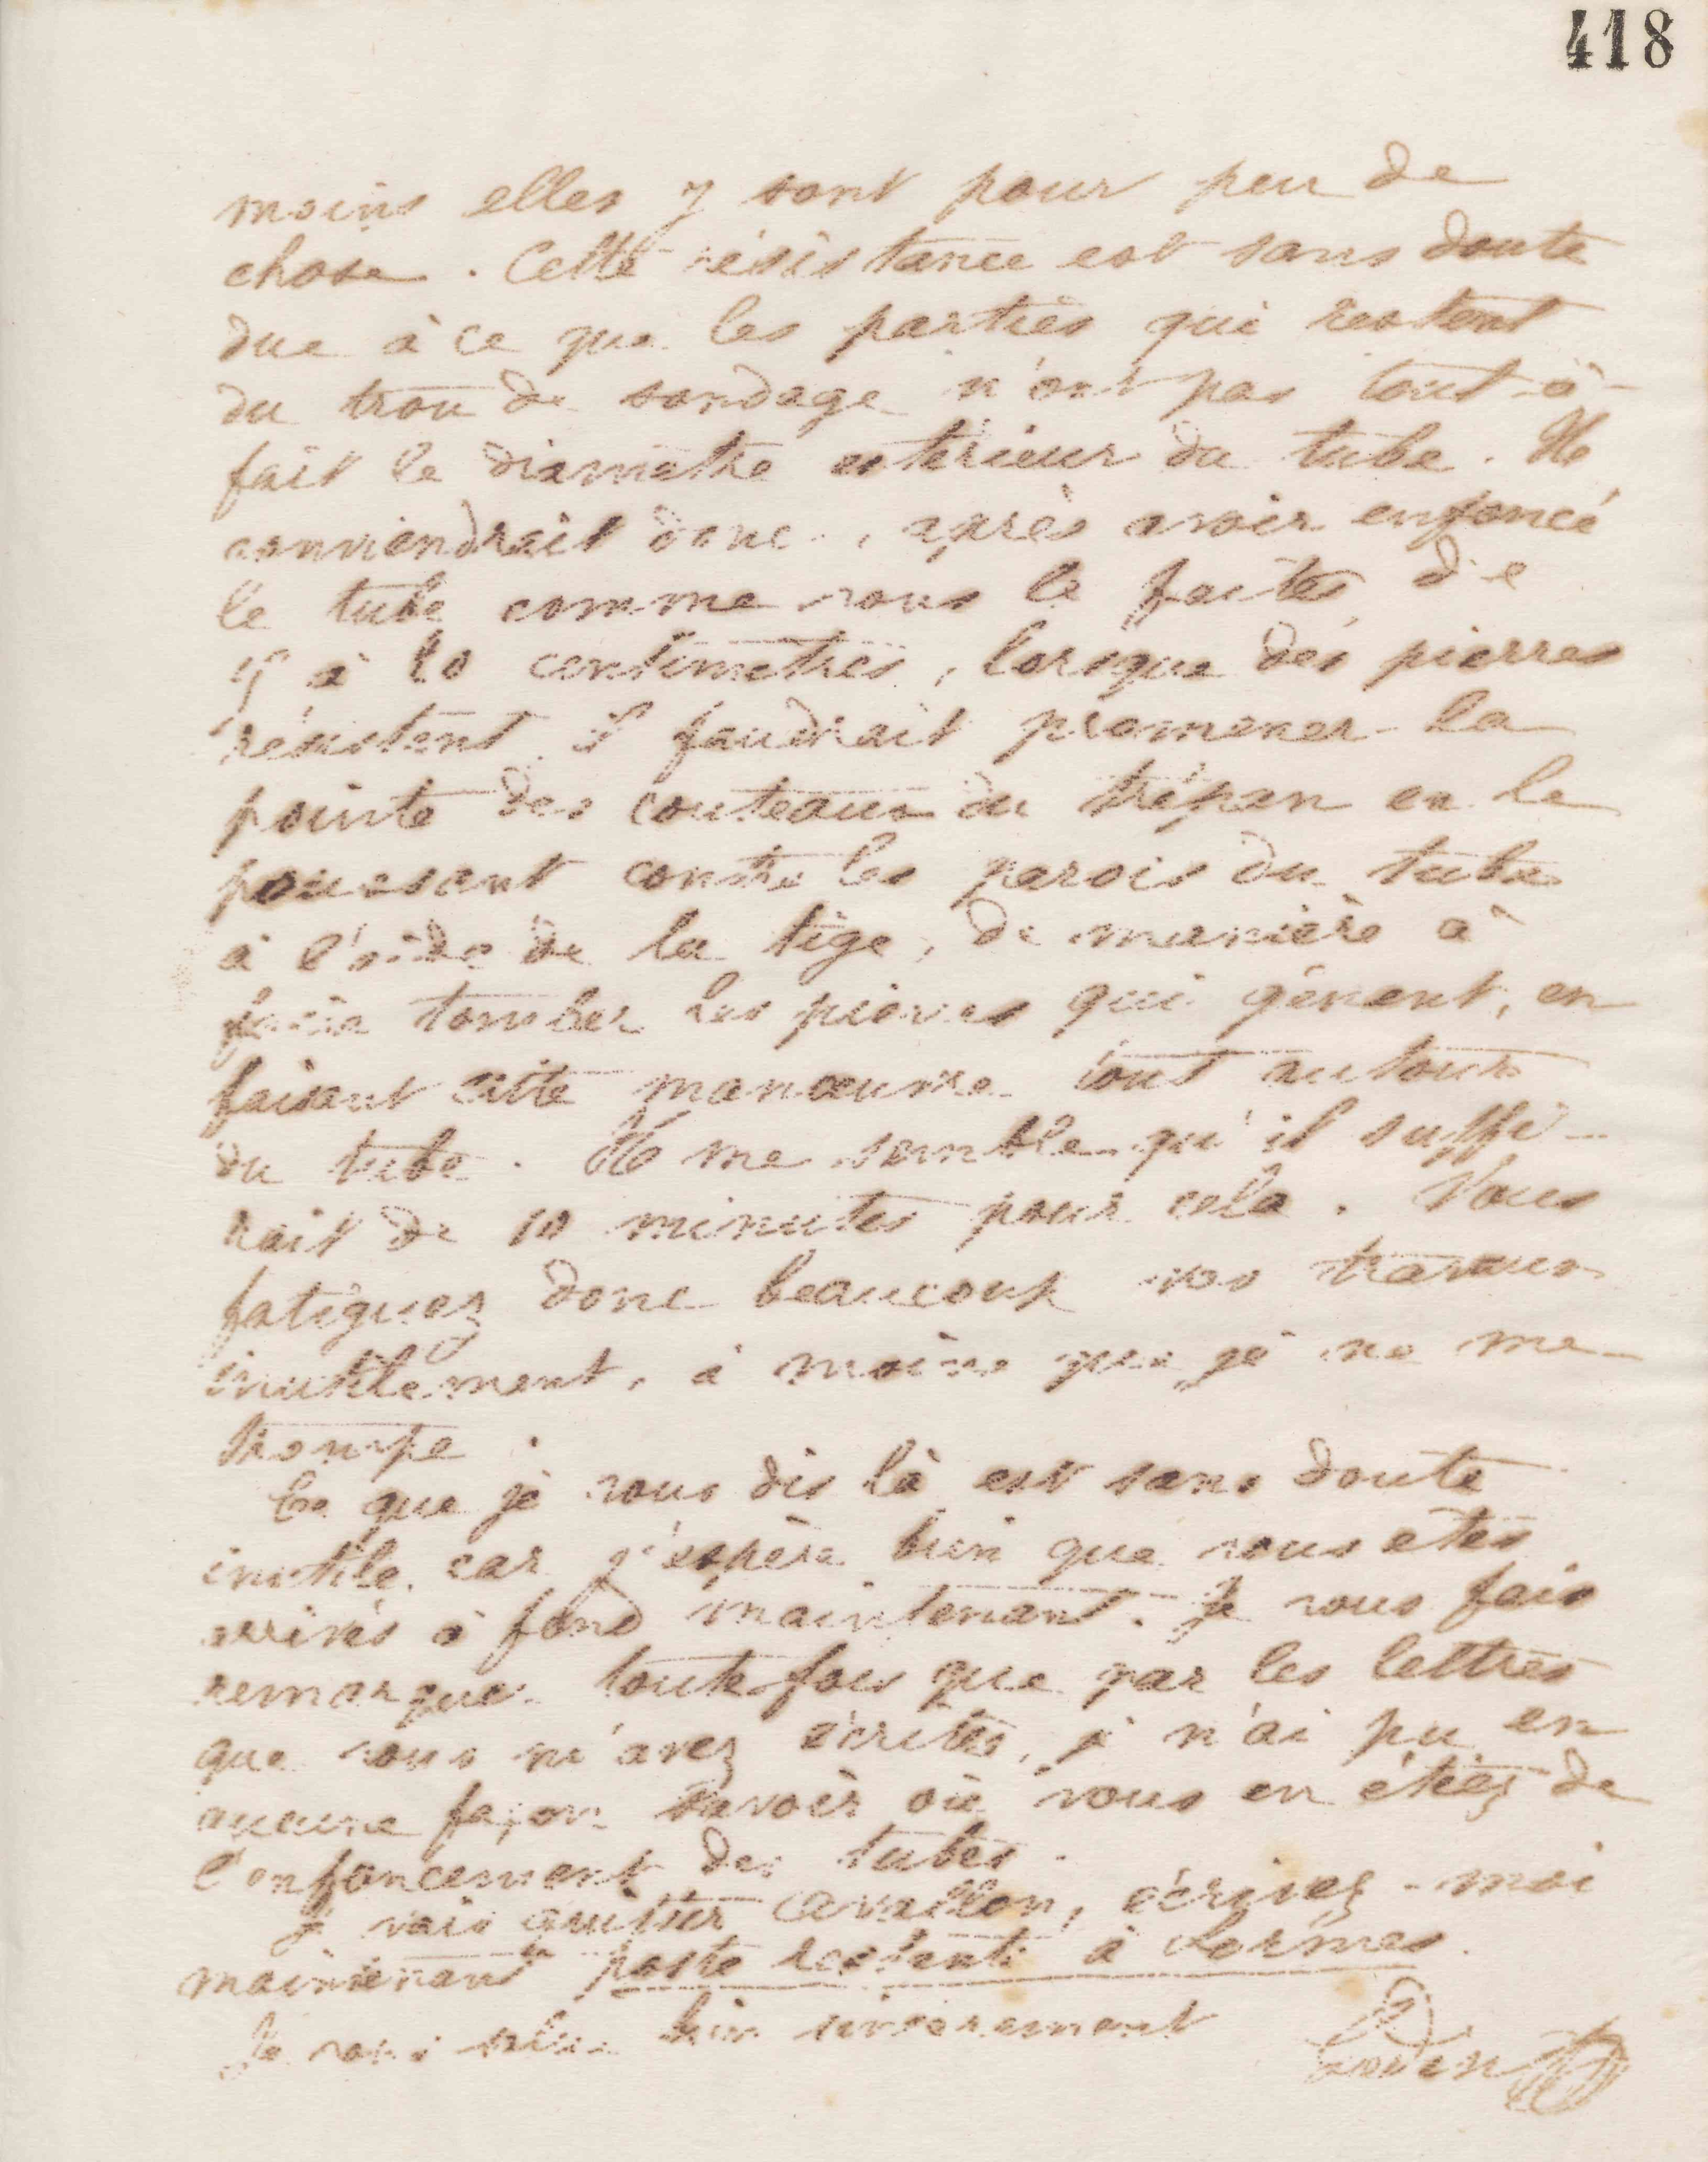 418
moins elles y sont pour peu de
chose. Cette résistance est sans doute
due à ce que les parties qui restent
du trou de sondage n'ont pas tout-à-
fait le diamètre extérieur du tube. Il
conviendrait donc, après avoir enfoncé
le tube comme vous le faites de
à 10 centimètres, lorsque des pierres
résistent il faudrait promener la
pointe des couteaux du trépan en le
poussant contre les parois du tube
à l'aide de la tige, de manière à
faire tomber les pierres qui gênent, en
faisant cette manœuvre tout autour
du tube. Il me semble qu'il suffi-
rait de 10 minutes pour cela. Vous
fatiguez donc beaucoup vos travaux
inutilement, à moins que je ne me
trompe.
Ce que je vous dis là est sans doute
inutile, car j'espère bien que vous êtes
arrivés à fond maintenant. Je vous fais
remarquer toutefois que par les lettres
que vous m'avez écrites, je n'ai pu en
aucune façon savoir où vous en étiez de
l'enfoncement des tubes.
Je vais quitter Cavaillon, écrivez-moi
maintenant poste restante à
Je vous salue bien sincèrement
Godin